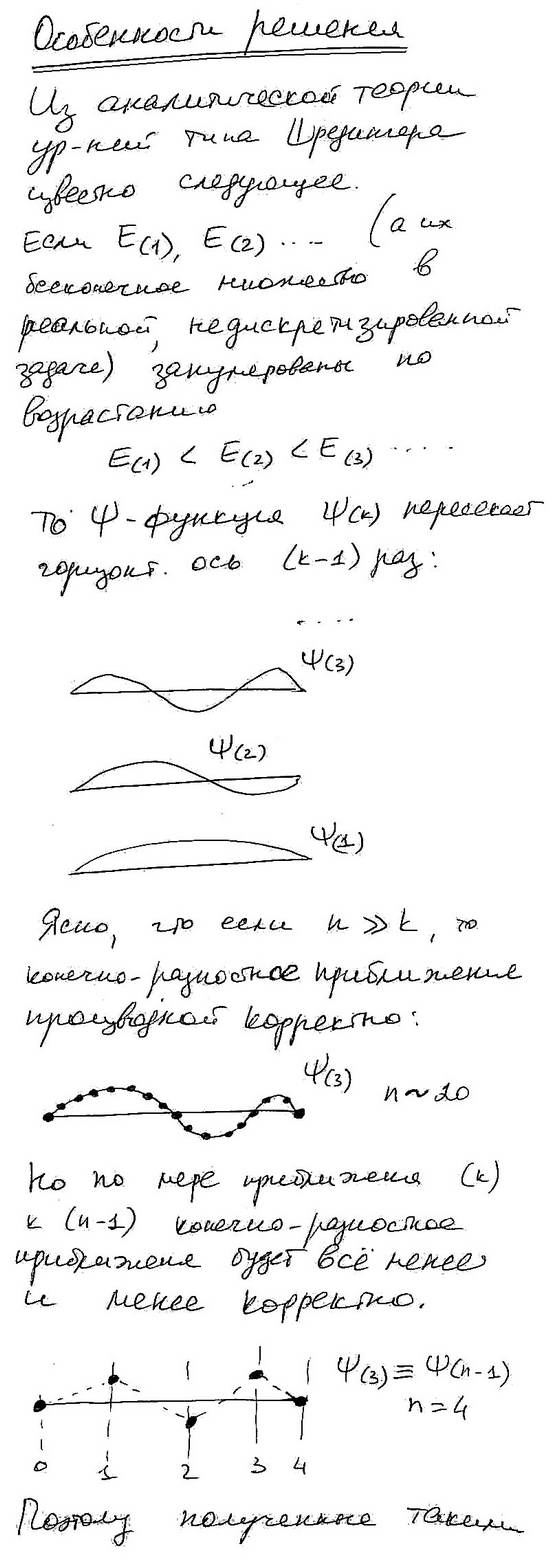 Особенности решения
Из аналитической теории
ур-ний типа Шредингера
известно следующее.
Если E(1), E(2) .... (а их
бесконечное множество в
реальной, недискретизированной
задаче) занумерованы по
возрастанию
E(1) < E(2) < E(3) ....
то Ψ-функция Ψ(k) пересекает
горизонт. ось (k-1) раз:
....
Ψ(3)
Ψ(2)
Ψ(1)
Ясно, что если n ≫ k, то
конечно-разностное приближение
производной корректно:
Ψ(3) n ~ 20
Но по мере приближения (k)
к (n-1) конечно-разностное
приближение будет всё менее
и менее корректно.
Ψ(3) ≡ Ψ(n-1)
n = 4
0 1 2 3 4
Поэтому полученные таким